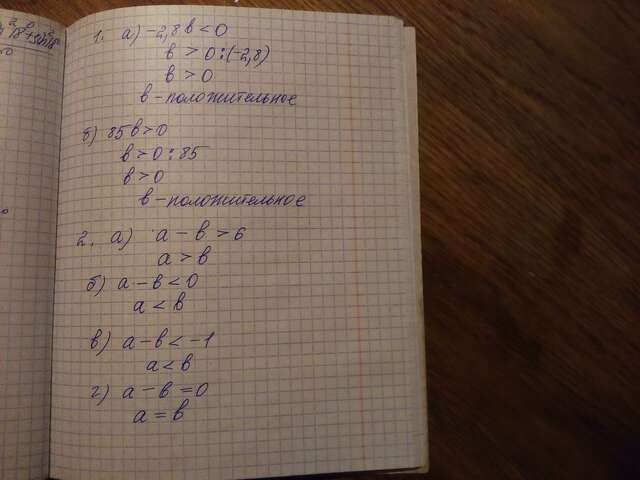 1. а) -2,8в < 0
в > 0 : (-2,8)
в > 0
в - положительное
б) 85в > 0
в > 0 : 85
в > 0
в - положительное
2. а) а - в > 6
а > в
б) а - в < 0
а < в
в) а - в < -1
а < в
г) а - в = 0
а = в